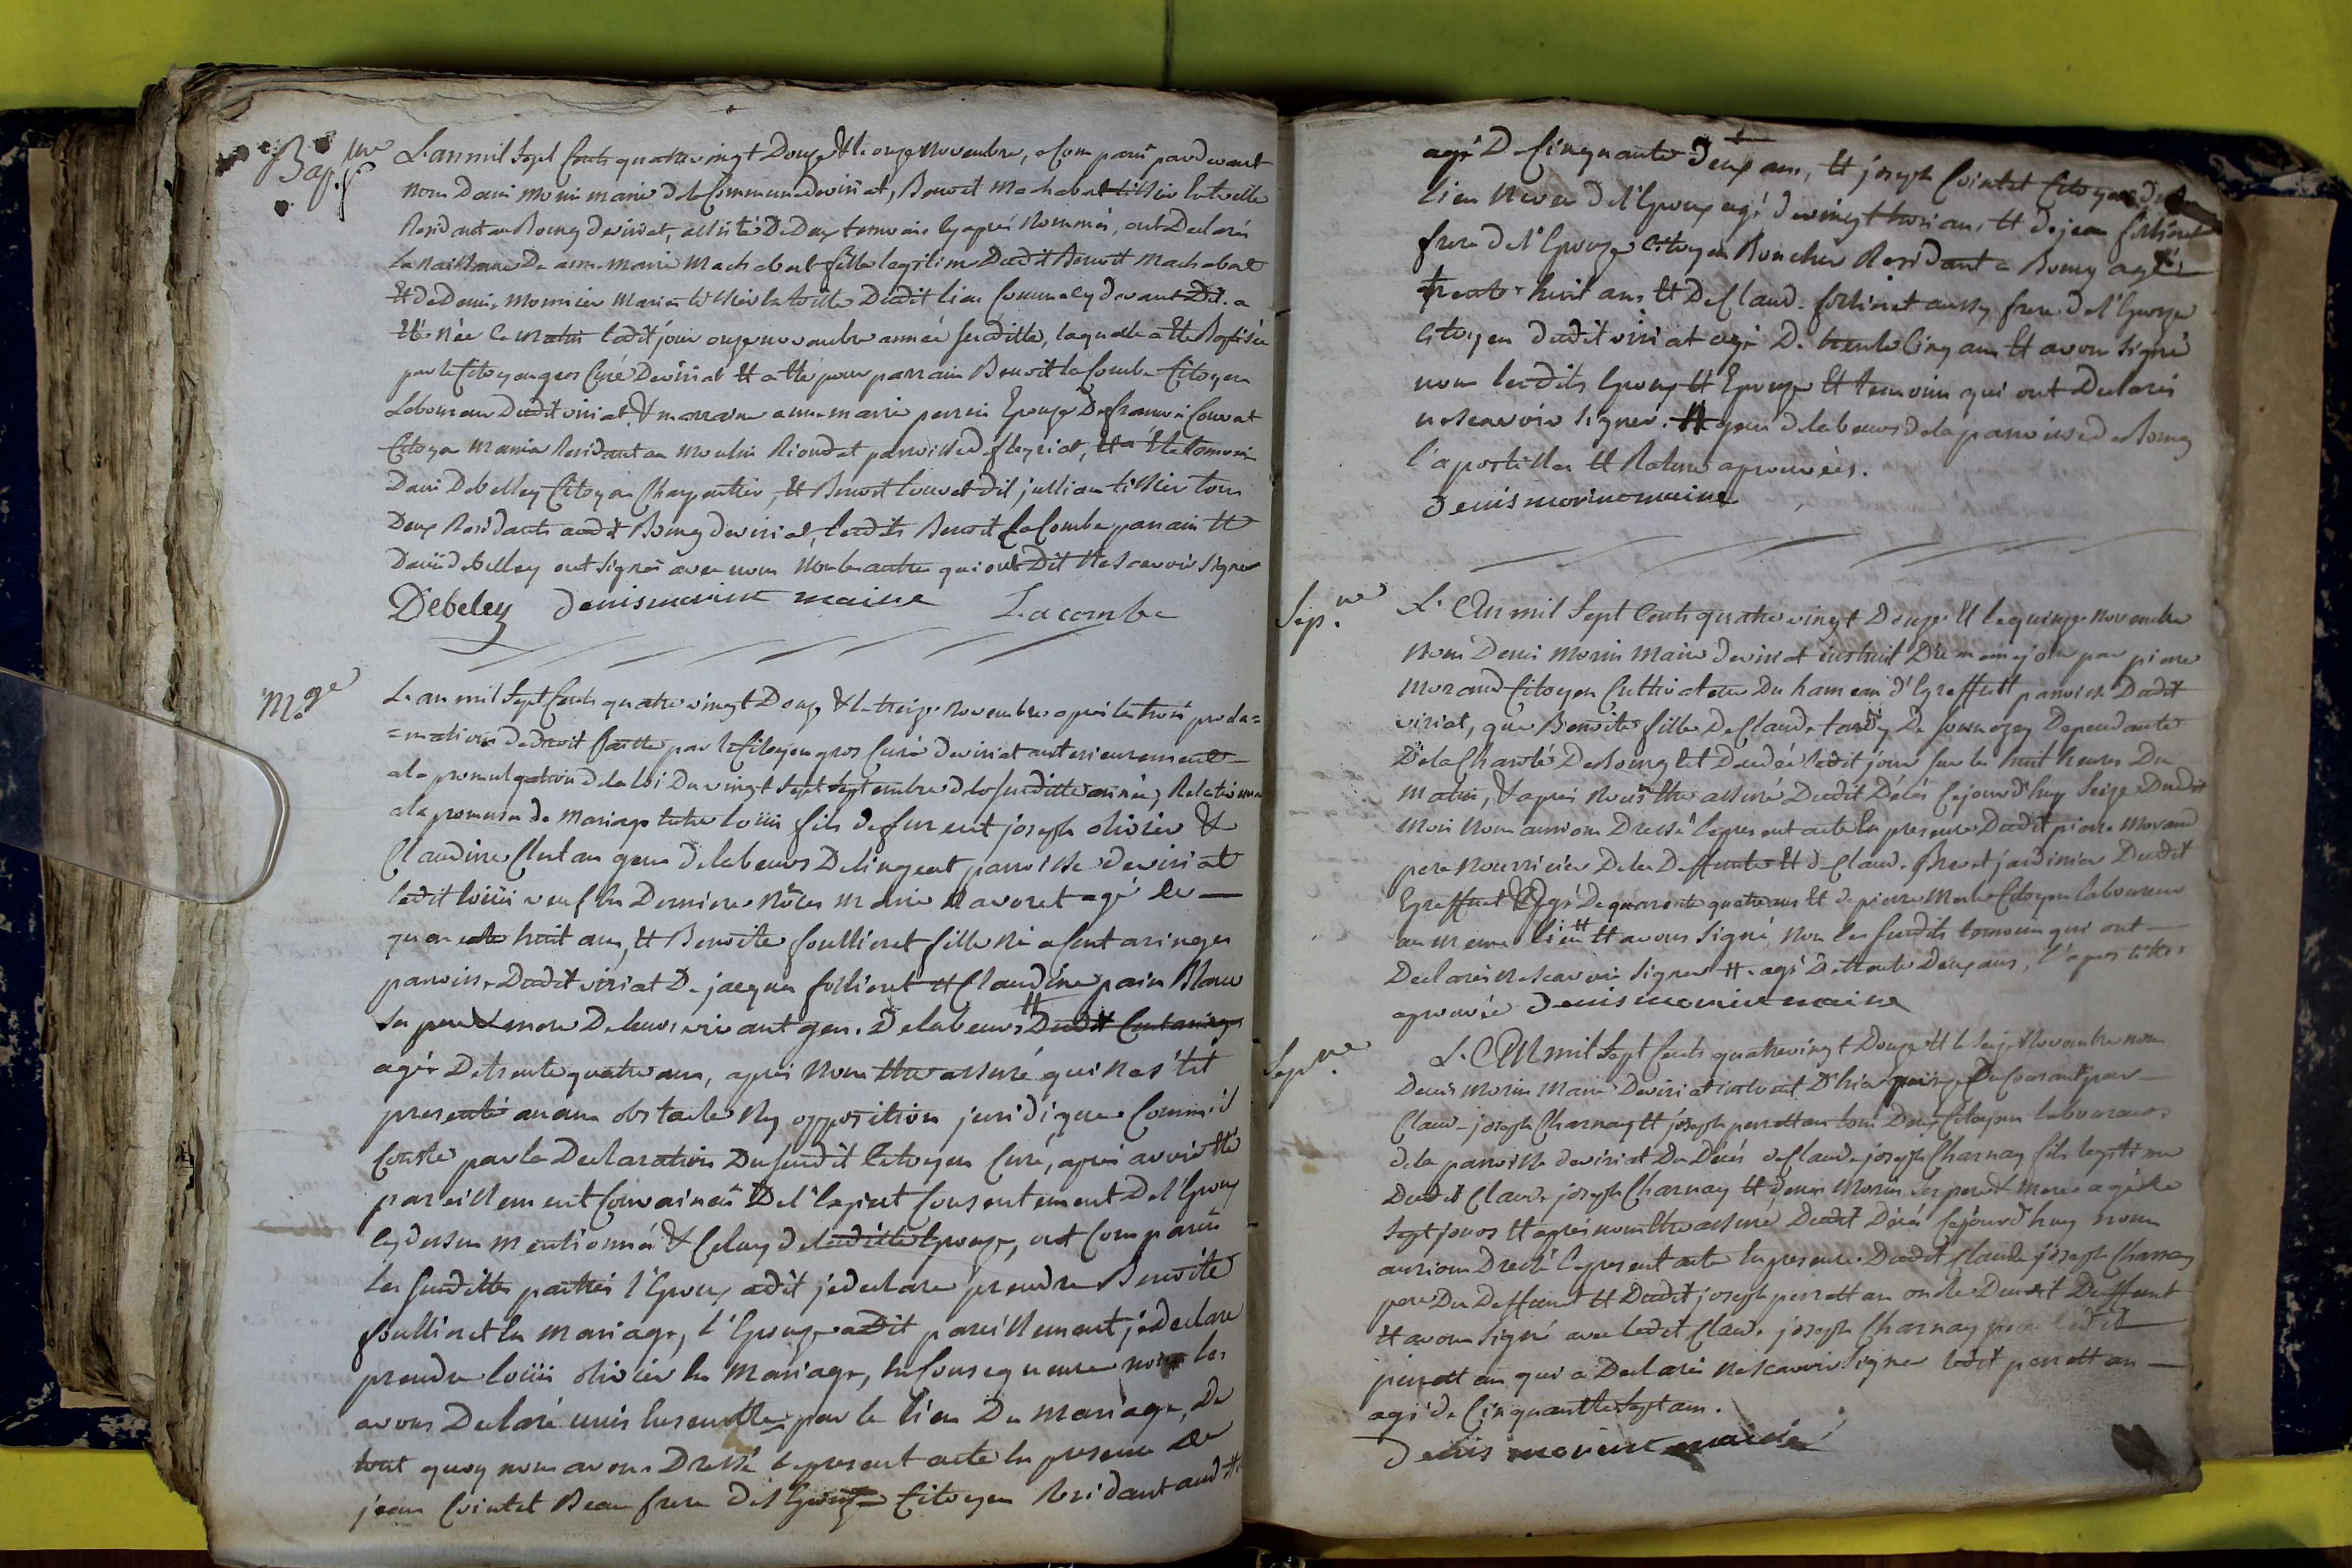 Bap.me
L'an mil Sept Cents quatre vingt Douze & le onze Novembre, a Comparu pardevant
Nous Denis Morin maire de la Commune deviriat, Benoit Machabat tissier en toille
Residant au Bourg deviriat, assisté De Deux temoins cy aprés Nommés, ont Declarés
La naissance De anne marie Machabat fille legitime Dudit Benoit Machabat
Et de Denise Monnier Mariés tissier en toille Dudit lieu Comme cy devant Dit. a
Eté Née ce matin ledit jour onze novembre année susditte, laquelle a Eté Baptisée
par le Citoyen gros Curé Deviriat Et a Eté pour parrain Benoit la Combe Citoyen
Laboureur Dudit viriat, & marraine anne marie perrin Epouze De francois Convat
Citoyen Manier Residant au Moulin Riondet parroisse de fleyriat, Et a Eté temoins
Denis Debelley Citoyen Charpentier, Et Benoit Convat dit jullian tissier tous
Deux Residants audit Bourg deviriat, lesdits Benoit La Combe parrain Et
Denis debelley ont Signés avec nous Non les autres qui ont Dit Ne Scavoir Signer
Debeley denis morin maire Lacombe
M.ge
L'an mil Sept Cents quatre vingt Douze & le treize Novembre aprés les trois procla=
=mations de droit faitte par le Citoyen gros Curé deviriat anterieurement
a la promulgation de la loi Du vingt Sept Septembre de la susditte année, Relativement
a la promesse de Mariage Entre Loüis fils de furent joseph olivier &
Claudine Clutan gens de labeurs De lingeat parroisse deviriat
ledit Loüis veuf En Derniere Nôces Marie Navoret agé De
quarente huit ans, Et Benoite foullieret fille Né a Centaringes
parroisse Dudit viriat De jacques follieret Et Claudine pain Blanc
Ses pere & mere De leurs vivant gens De labeurs # Dudit Centaringes
agée De trente quatre ans, aprés Nous Etre assuré qui Nes'Est
presenté aucune obstacle Ny opposition juridique Comm'il
Conste par la Declaration Du susdit Citoyen Curé, aprés avoir Eté
pareillement Convaincu Del'Expret Consentement Del'Epoux
cy dessus mentionné & Celuy de laditte Epouze, ont Comparu
Les susdittes parties l'Epoux adit je declare prendre Benoite
foullieret En mariage, l'Epouze adit pareillement je declare
prendre Loüis olivier En Mariage, En Consequence nous les
avons Declaré unis Ensemble par le lien Du Mariage, De
tout quoy nous avons Dressé le present acte En presence De
jean Cointet Beau frere De l'Epouze Citoyen Residant audit
agé De Cinquante Deux ans, Et joseph Cointet Citoyen dudit
lieu Neveu Del'Epoux agé de vingt trois ans, Et De jean follieret
frere Del'Epouze Citoyen Boucher Residant a Bourg agé
trente huit ans Et De Claude follieret aussy frere Del'Epouze
Citoyen dudit viriat agé De trente Cinq ans Et avons Signé
non lesdits Epoux Et Epouze Et temoins qui ont Declarés
ne Scavoir Signer. # gens de labeurs de la parroisse de Bourg
l'apostilles Et Rature aprouvées.
denis morin maire
Sep.re
L'An mil Sept Cents quatre vingt Douze Et le quinze Novembre
Nous Denis Morin Maire deviriat instruit Du meme jour par pierre
Morand Citoyen Cultivateur Du hameau d'Egreffiett parroisse Dudit
viriat, que Benoite fille De Claude tardy De Journozey Dependante
De la Charité De Bourg Est Decedée ledit jour sur les huit heures Du
matin, & aprés Nous Etre assuré Dudit Décés Cejourd'huy Seize Dudit
Mois Nous aurions Dressé le present acte En presence Dudit pierre Morand
pere Nourricier De la Deffunte Et de Claude Brevet jardinier Dudit
Egreffiet Agé De quarente quatre ans Et de pierre Merle Citoyen laboureur
au meme lieu # Et avons Signé Non les susdits temoins qui ont
Declarés Ne Scavoir Signer #. agé De trente Deux ans, l'apostille
aprouvée denis morin maire
Sep.re
L'An mil Sept Cents quatre vingt Douze Et le seize Novembre nous
Denis Morin Maire Deviriat instruit D'hier quinze Du Courant par
Claude joseph Charnay Et joseph perrottan tous Deux Citoyens laboureurs
de la parroisse deviriat Du Décés de Claude joseph Charnay fils legitime
Dudit Claude joseph Charnay Et denise Morin Ses pere & mere agé de
Sept jours Et aprés nous Etre assuré Dudit Décés Cejourd'huy nous
aurions Dressé le present acte En presence Dudit Claude joseph Charnay
pere Du Deffunt Et Dudit joseph perrottan oncle Dudit Deffunt
Et avons Signé avec ledit Claude joseph Charnay ledit
perrottan qui a Declaré Ne Scavoir Signer ledit perrottan
agé de Cinquante Sept ans.
Denis morin maire